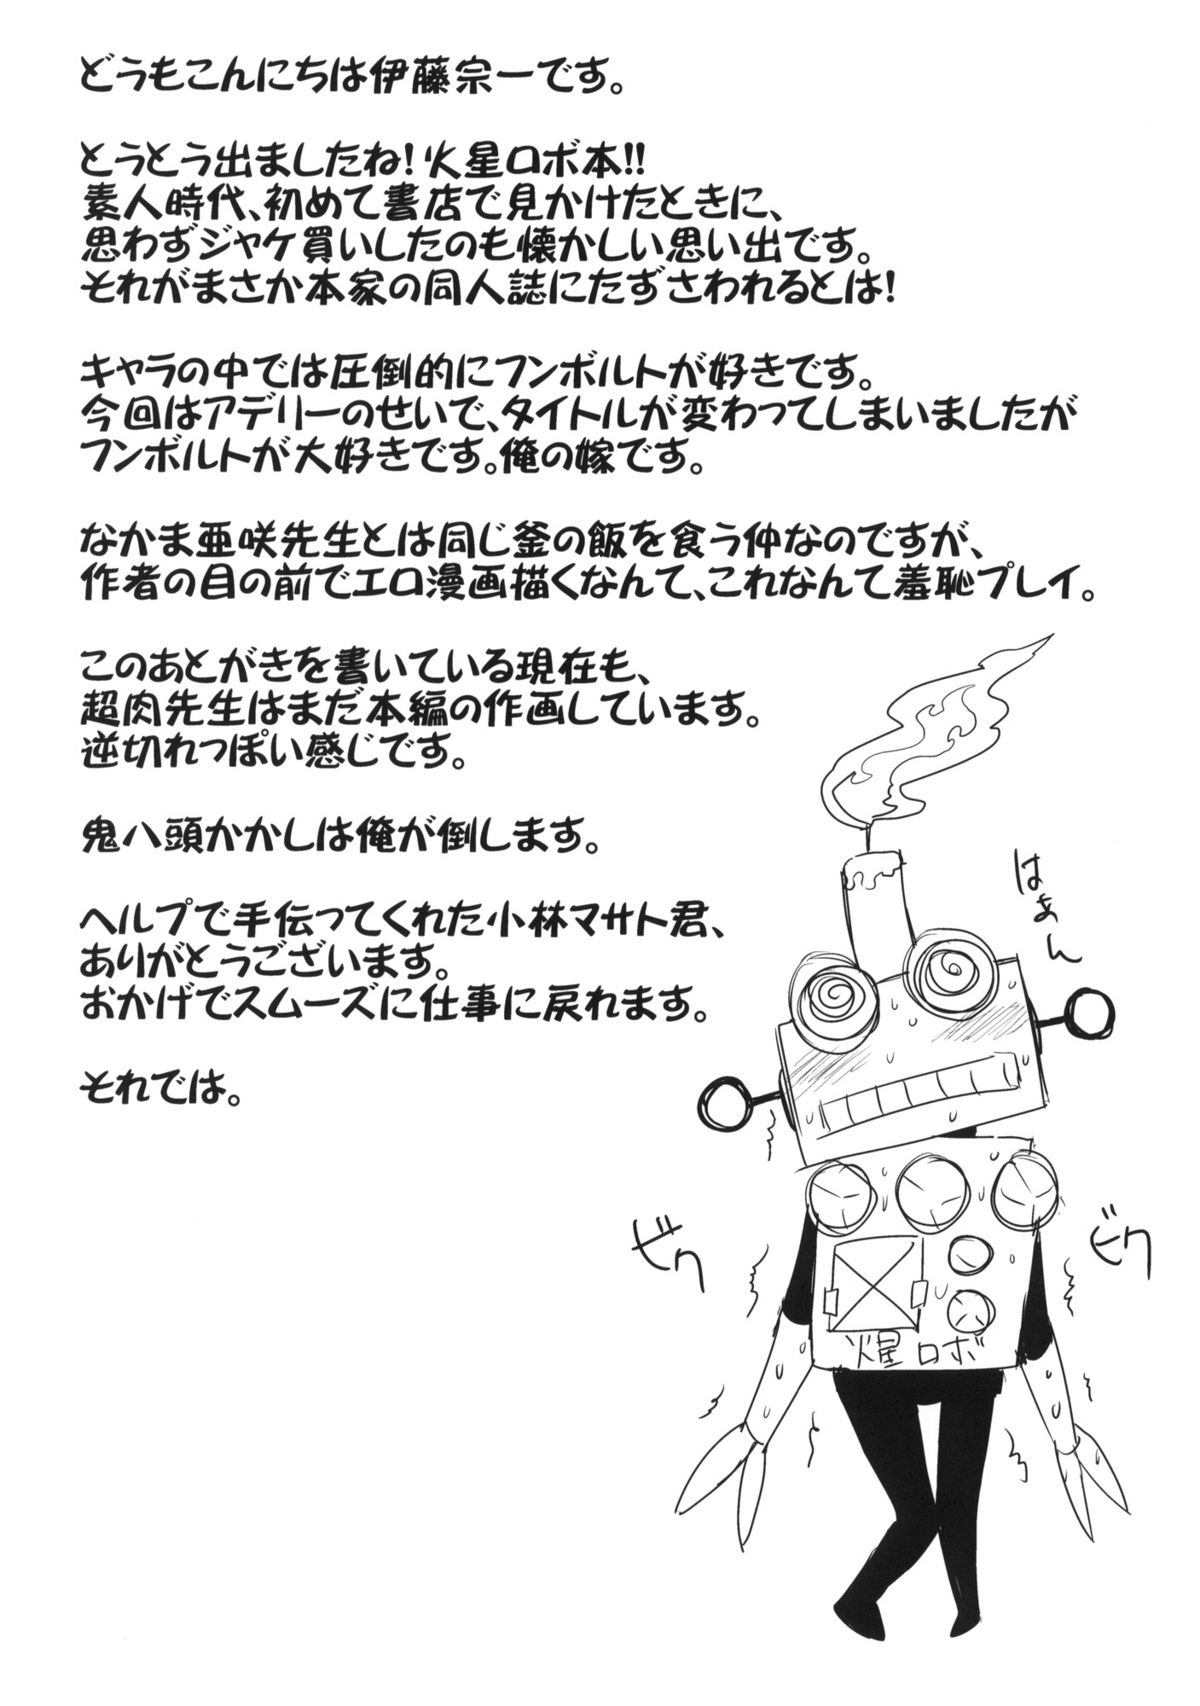 どうもこんにちは伊藤宗一です。
とうとう出ましたね!火星ロボ本!!
素人時代、初めて書店で見かけたときに、
思わずジャケ買いしたのも懐かしい思い出です。
それがまさか本家の同人誌にたずさわれるとは!
キャラの中では圧倒的にフンボルトが好きです。
今回はアデリーのせいで、タイトルが変わってしまいましたが
フンボルトが大好きです。俺の嫁です。
なかま亜咲先生とは同じ釜の飯を食う仲なのですが、
作者の目の前でエロ漫画描くなんて、これなんて羞恥プレイ。
このあとがきを書いている現在も、
超肉先生はまだ本編の作画しています。
逆切れっぽい感じです。
鬼八頭かかしは俺が倒します。
ヘルプで手伝ってくれた小林マサト君、
ありがとうございます。
おかげでスムーズに仕事に戻れます。
それでは。
はぁん
ビク
ビク
火星ロボ